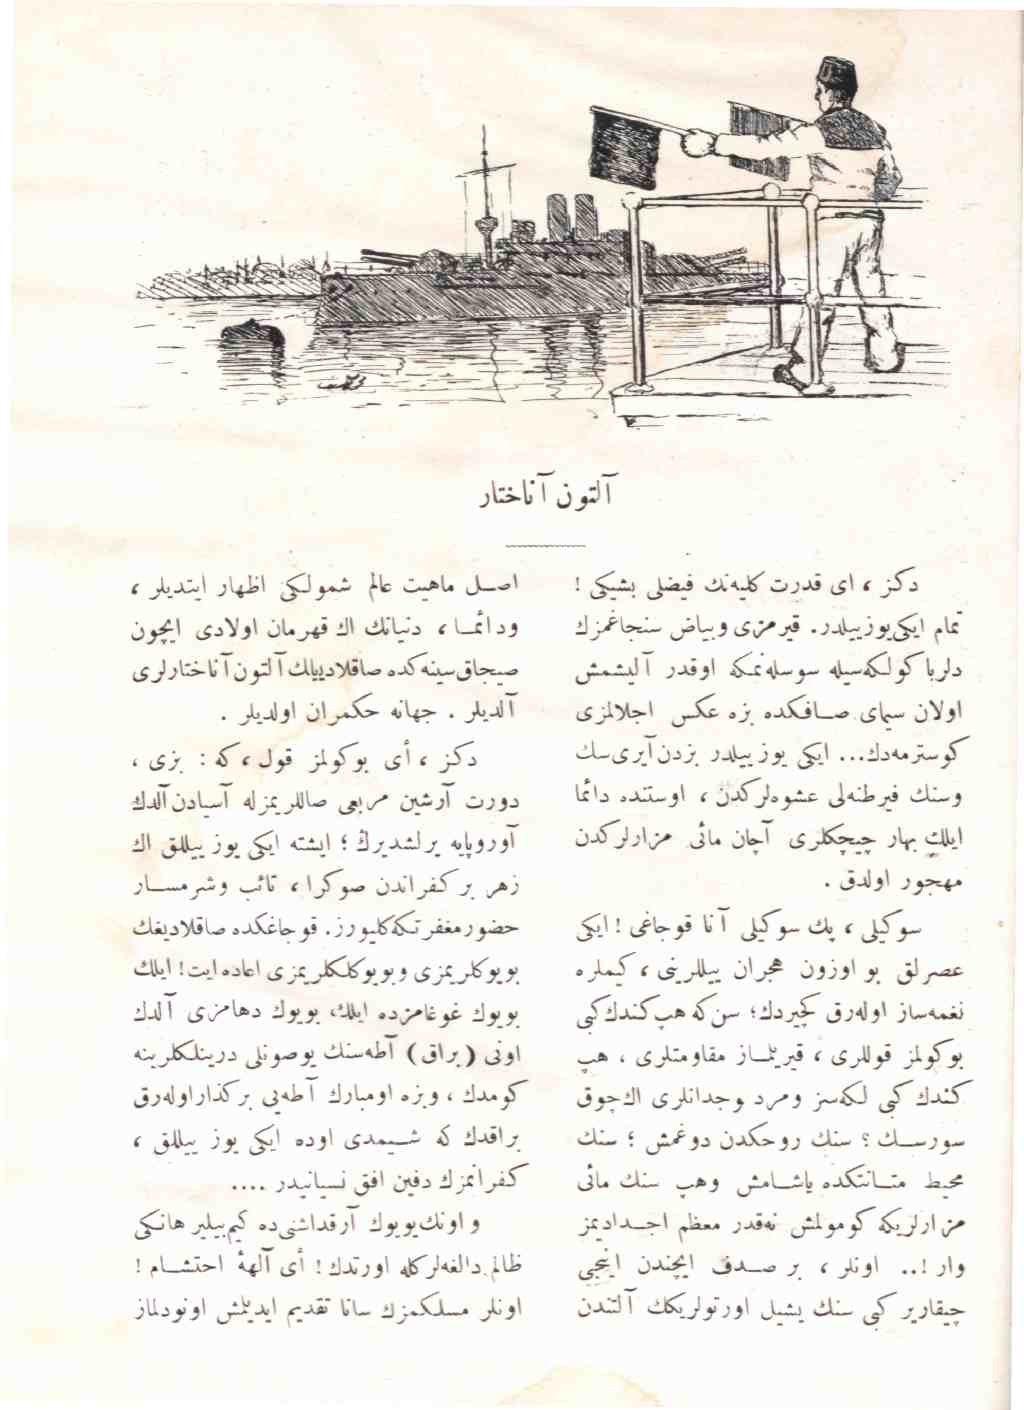 آلتون آناختار
دكز ، ای قدرت كلیه‌نك فیضلی بشیكی !
تمام ایكی یوز ییلدر. قیرمزی و بیاض سنجاغمزك
دلربا كولكه‌سیله سوسله‌نمكه اوقدر آلیشمش
اولان سیمای صـافكده بزه عكس اجلالمزی
كوسترمه‌دك... ایكی یوز ییلدر بزدن آیری‌سك
وسنك فیرطنه‌لی عشوه‌لركدن ، اوستنده دائما
ایلك بهار چیچكلری آچان مائی مزارلركدن
مهجور اولدق .
سوكیلی ، پك سوكیلی آنا قوجاغی ! ایكی
عصرلق بو اوزون هجران ییللرینی ، كیملره
نغمه‌ساز اوله‌رق كچیردك؛ سن‌كه هپ كندك‌كبی
بوكولمز قوللری ، قیریلماز مقاومتلری ، هپ
كندك كبی لكه‌سز ومرد وجدانلری اك‌چوق
سورسـك ؟ سنك روحكدن دوغمش ؛ سنك
محیط متـانتكده یاشـامش وهپ سنك مائی
مزارلریكه كومولمش نه‌قدر معظم اجـدادیمز
وار !.. اونلر ، بر صـدف ایچندن اینجی
چیقاریر كبی سنك یشیل اورتولریكك آلتندن
اصـل ماهیت عالم شمولكی اظهار ایتدیلر ،
ودائمـا ، دنیانك اك قهرمان اولادی ایچون
صیجاق‌سینه‌كده صاقلادیغك آلتون آناختارلری
آلدیلر . جهانه حكمران اولدیلر .
دكز ، أی بوكولمز قول ، كه : بزی ،
دورت آرشین مربعی صاللریمزله آسیادن‌آلدك
آوروپایه یرلشدیرك ؛ ایشته ایكی یوز ییللق اك
زهر بر كفراندن صوكرا ، تائب وشرمسـار
حضور مغفرتكه‌كلیورز. قوجاغكده صاقلادیغك
بویوكلریمزی وبویوكلكلریمزی اعاده‌ایت! ایلك
بویوك غوغامزده ایلك، بویوك دهامزی آلدك
اونی (براق) آطه‌سنك یوصونلی درینلكلرینه
كومدك ، وبزه اومبارك آطه‌یی بركذاراوله‌رق
براقدك كه شـیمدی اوده ایكی یوز ییللق ،
كفرانمزك دفین افق نسیانیدر ....
و اونك‌بویوك آرقداشنی‌ده كیم‌بیلیر هانكی
ظالم دالغه‌لركله اورتدك! أی آلهۀ احتشـام !
اونلر مسلكمزك سانا تقدیم ایدیلمش اونودلماز